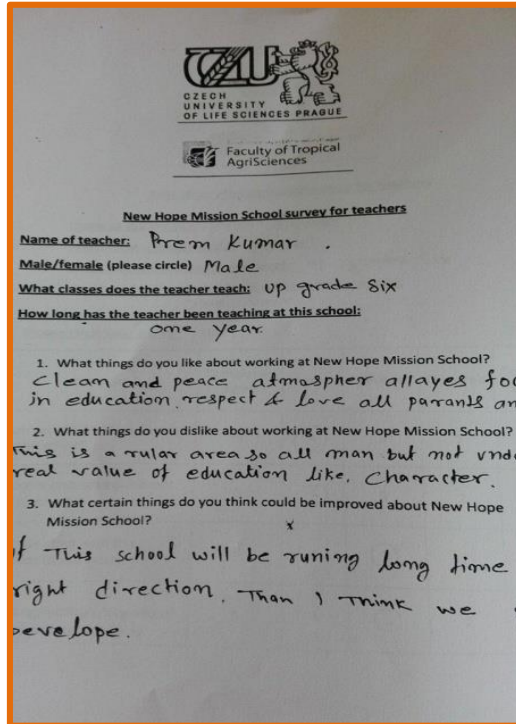 CZU
CZECH
UNIVERSITY
OF LIFE SCIENCES PRAGUE
Faculty of Tropical
AgriSciences
New Hope Mission School survey for teachers
Name of teacher: Prem Kumar .
Male/female (please circle) Male
What classes does the teacher teach: up grade six
How long has the teacher been teaching at this school:
one year
1. What things do you like about working at New Hope Mission School?
Clean and peace atmospher allayes
in education, respect & love all parants
2. What things do you dislike about working at New Hope Mission School?
This is a rular area so all man but not
real value of education like, Character.
3. What certain things do you think could be improved about New Hope
Mission School?
x
If This school will be runing long time
right direction. Than I Think we
Develope.